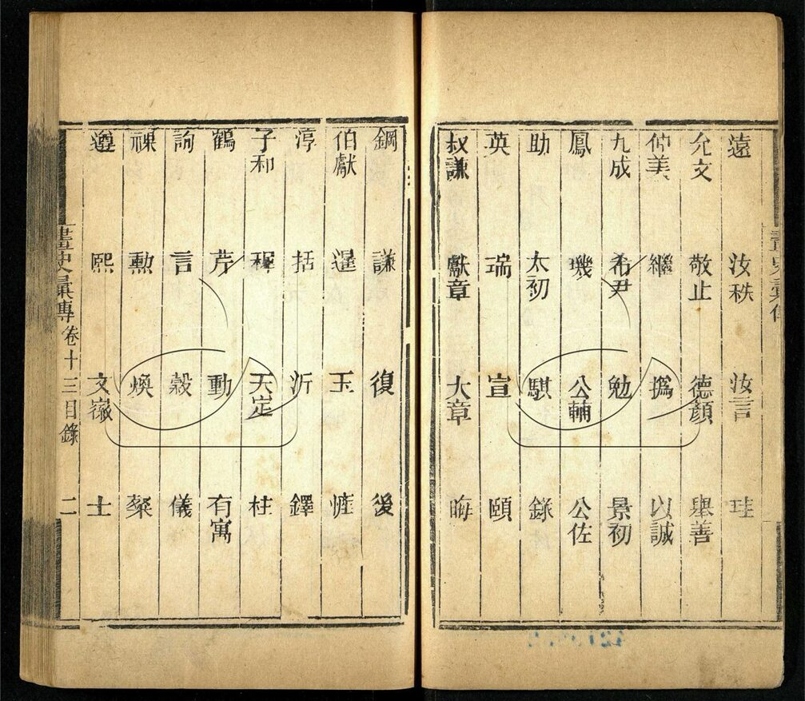 遠 汝秩 汝言 珪
允文 敬止 德顏 與善
仲美 繼 撝 以誠
九成 希尹 勉 景初
鳳 璣 公輔 公佐
助 太初 騏 錄
英 瑞 宣 頤
叔謙 獻章 大章 晦
鋼 謙 復 後
伯獻 暹 玉
淳 括 沂 鐸
子和 穉 天定 柱
鶴 芹 動 有寓
詢 言 穀 儀
勲 煥 粲
遵 熙 文嶽 士
畫史彙傳卷十三目錄 二